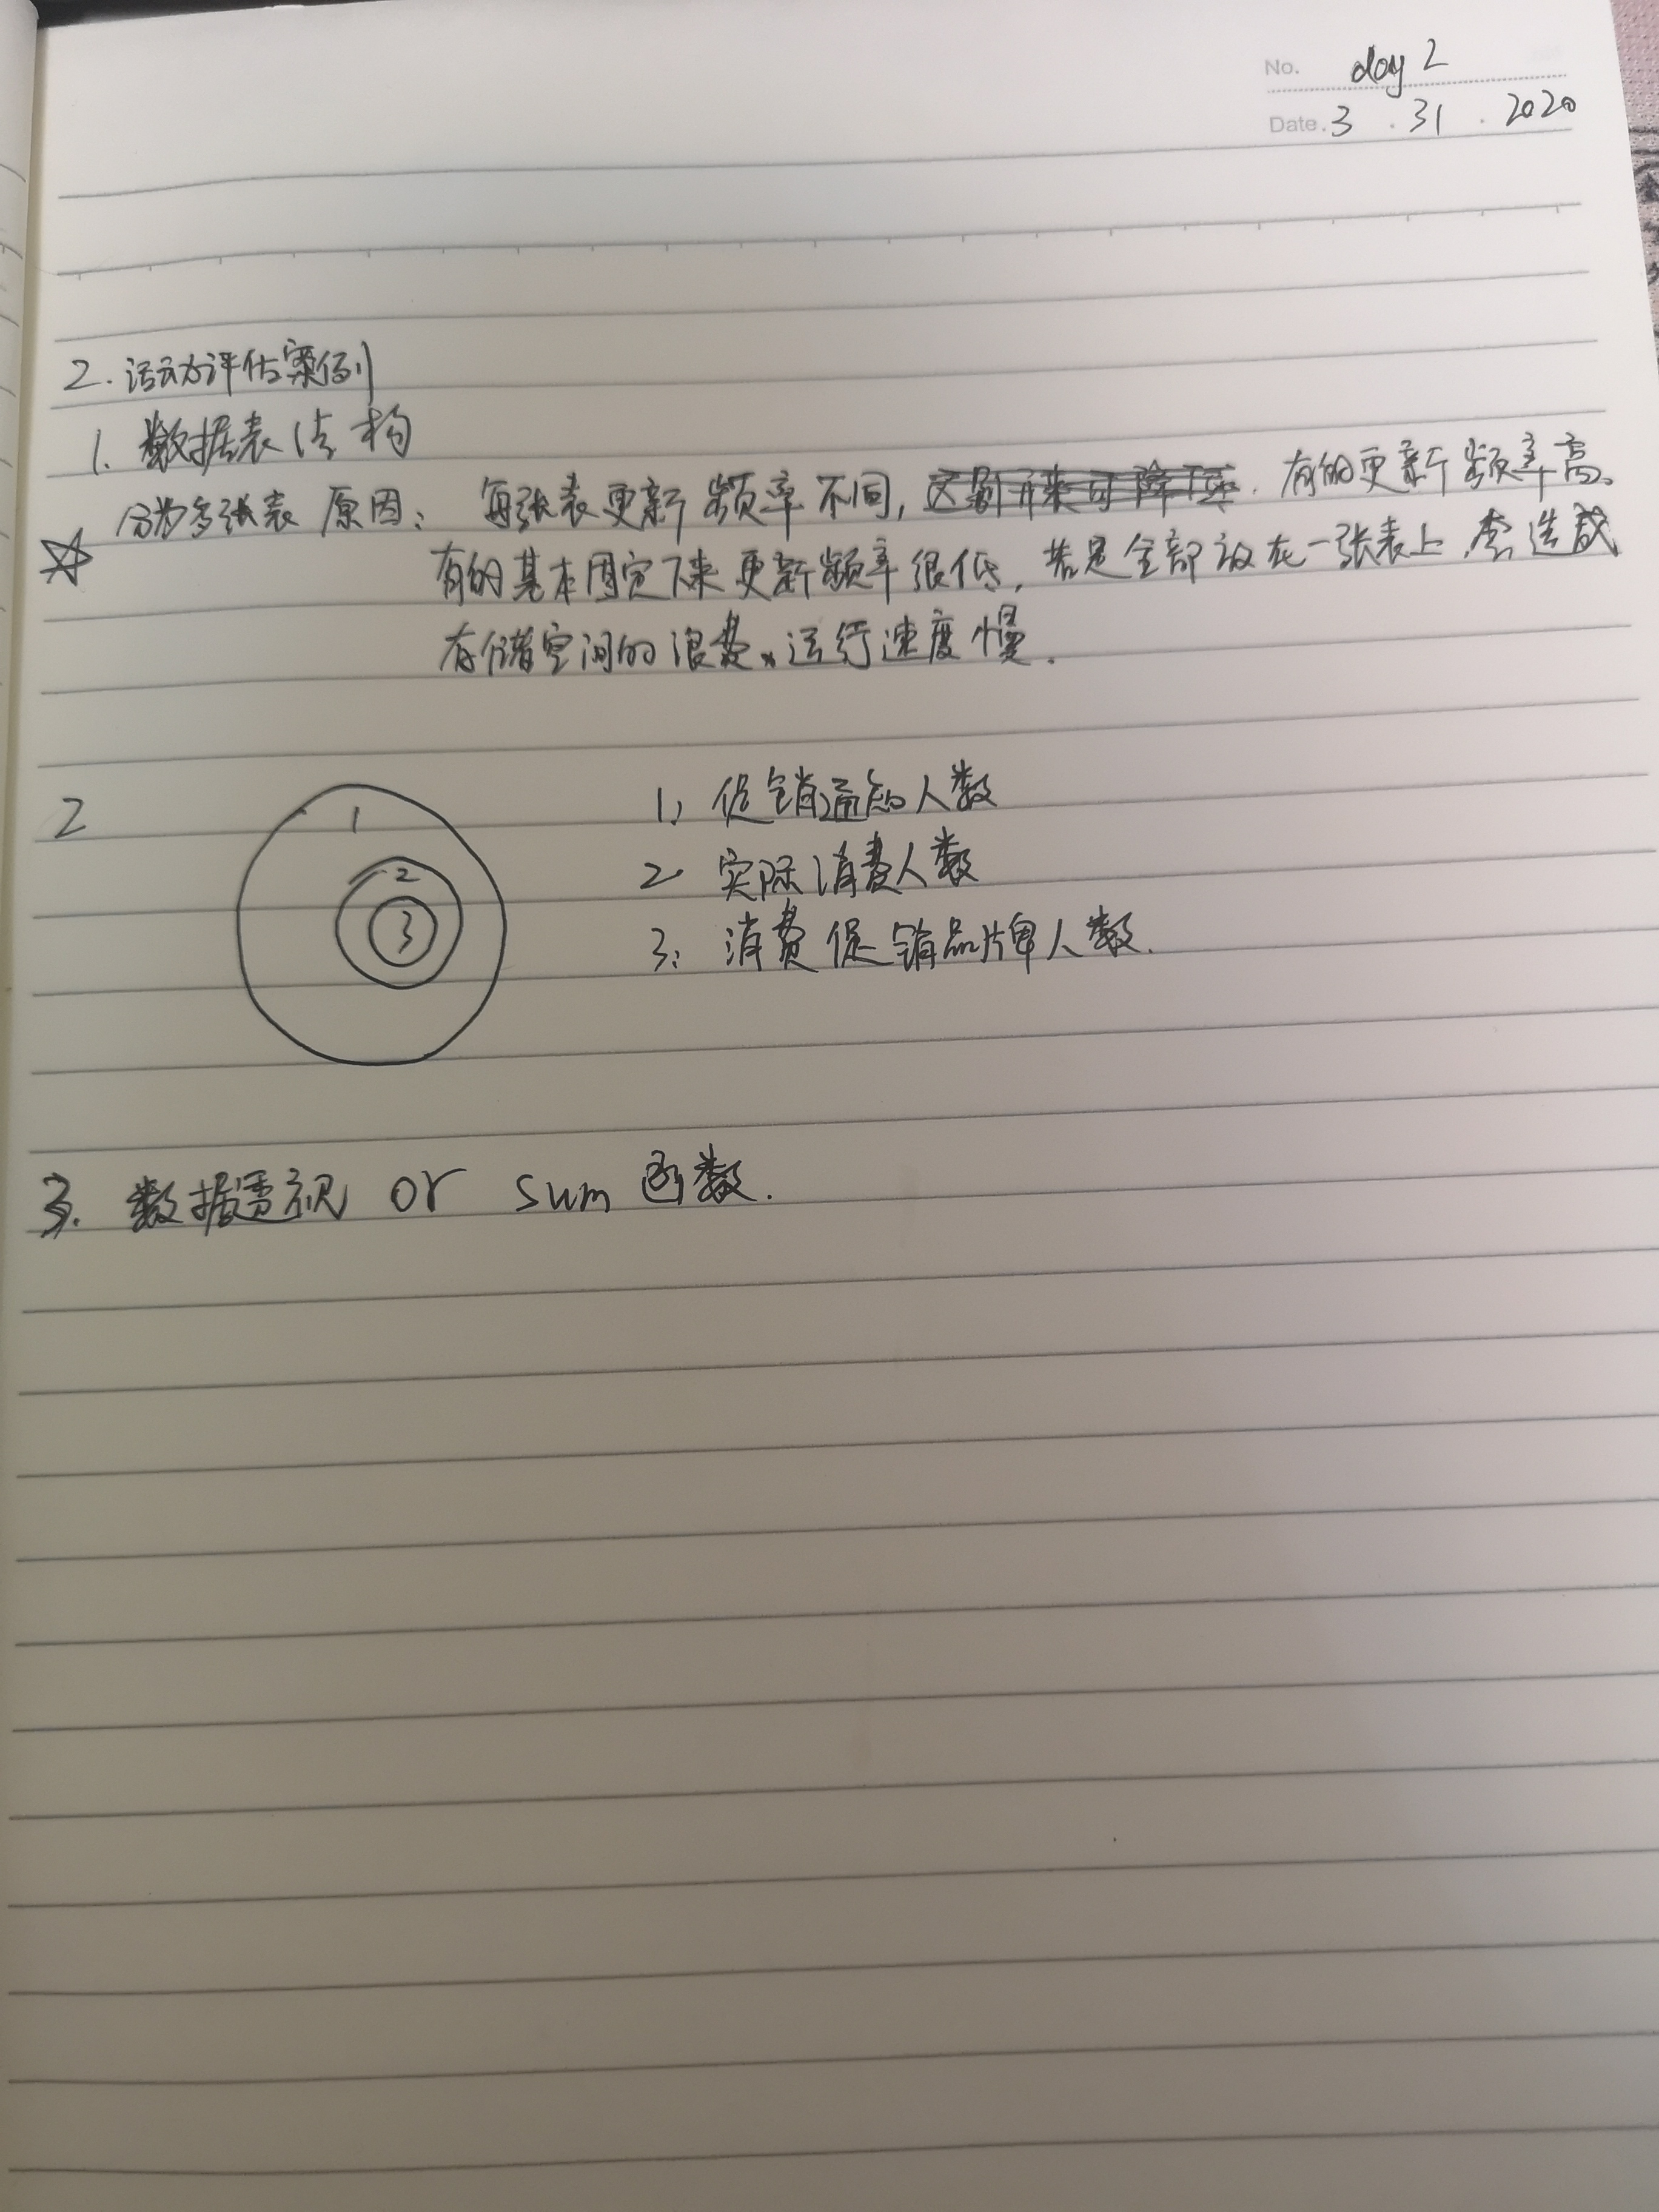 No. day 2
Date. 3 . 31 . 2020
2. 活动评估案例
1. 数据表结构
分为多张表 原因： 每张表更新频率不同， 有的更新频率高、
有的基本固定下来更新频率很低，若是全部放在一张表上，会造成
存储空间的浪费、运行速度慢.
2
1
2
3
1: 促销通知人数
2. 实际消费人数
3: 消费促销品牌人数.
3. 数据透视 or sum 函数.